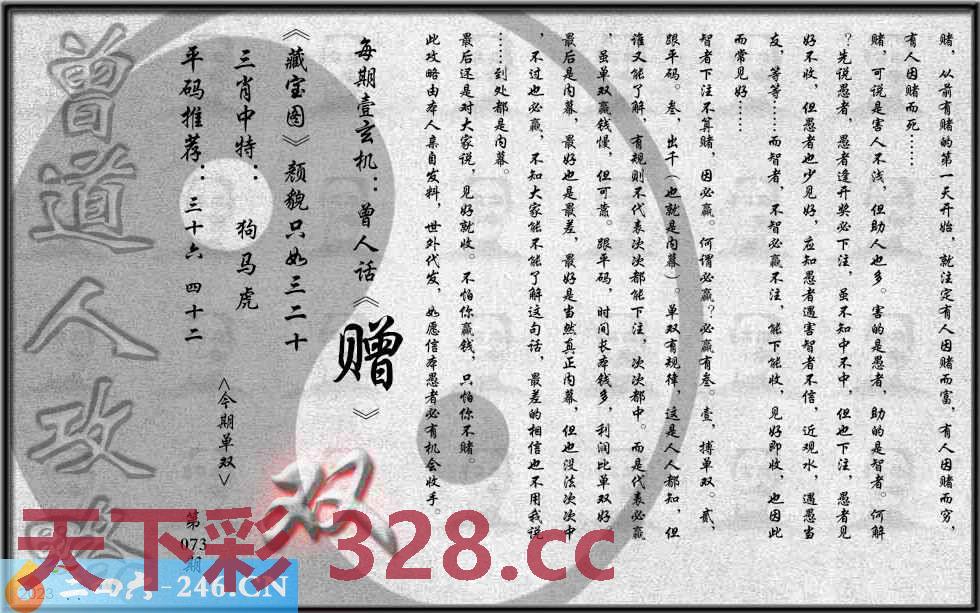 赌，从前有赌的第一天开始，就注定有人因赌而富，有人因赌而穷，
有人因赌而死……
赌，可说是害人不浅，但助人也多。害的是愚者，助的是智者。何解
？先说愚者，愚者逢开奖必下注，虽不知中不中，但也下注，愚者见
好不收，但愚者也少见好，应知愚者遇害智者不信，近观水，遇愚当
友，等等……而智者，不智必赢不注，能下能收，见好即收，也因此
而常见好……
智者下注不算赌，因必赢。何谓必赢？必赢有叁。壹，搏单双。贰，
跟平码。叁，出千（也就是内幕）。单双有规律，这是人人都知，但
谁又能了解，有规则不代表次次都能下注，次次都中。而是代表必赢
，虽单双赢钱慢，但可靠。跟平码，时间长本钱多，利润比单双好。
最后是内幕，最好也是最差，最好是当然真正内幕，但也没法次次中
，不过也必赢，不知大家能不能了解这句话，最差的相信也不用我说
……到处都是内幕。
最后还是对大家说，见好就收。不怕你赢钱，只怕你不赌。
此攻略由本人亲自发料，世外代发，如愿信本愚者必有机会收手。
每期壹玄机：曾人话《赠》
《藏宝图》颜貌只如三二十
三肖中特：狗马虎
平码推荐：三十六 四十二
<今期单双>
双
第073期
曾道人攻略
天下彩 328.cc
二四六-246.CN
2023